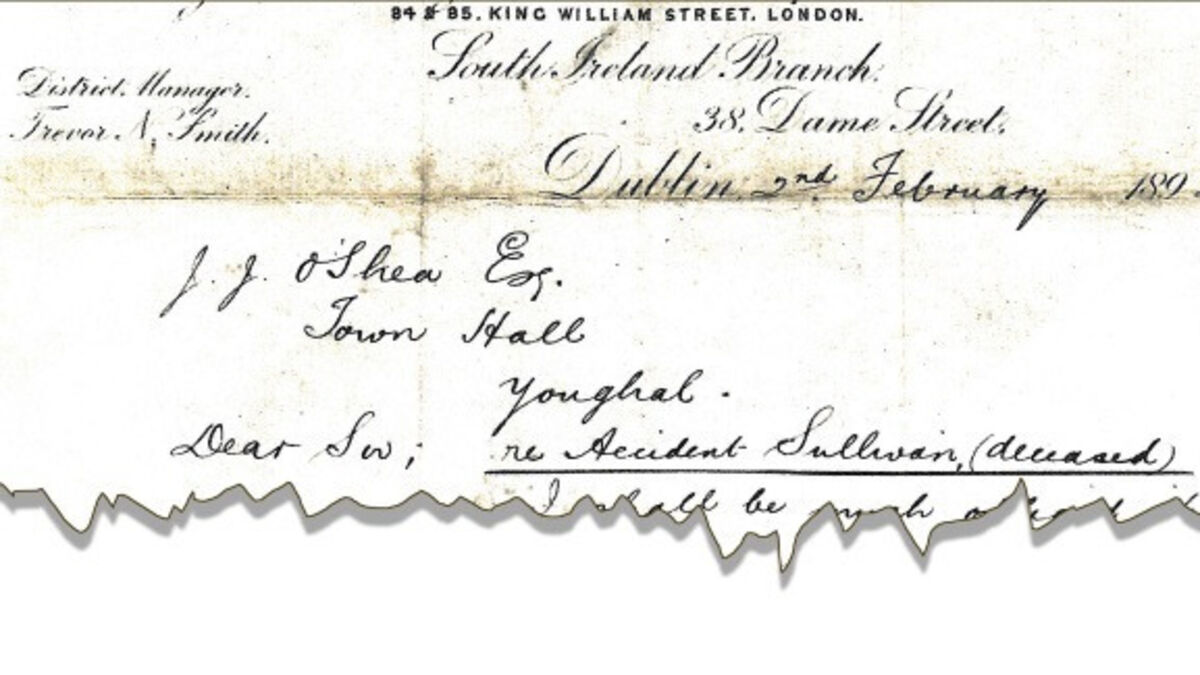 84 & 85, KING WILLIAM STREET, LONDON.
South Ireland Branch.
District Manager.
Trevor N. Smith.
38, Dame Street,
Dublin, 2nd February 189
J. J. O'Shea Esq.
Town Hall
Youghal.
Dear Sir; re Accident Sullivan, (deceased)
I shall be much